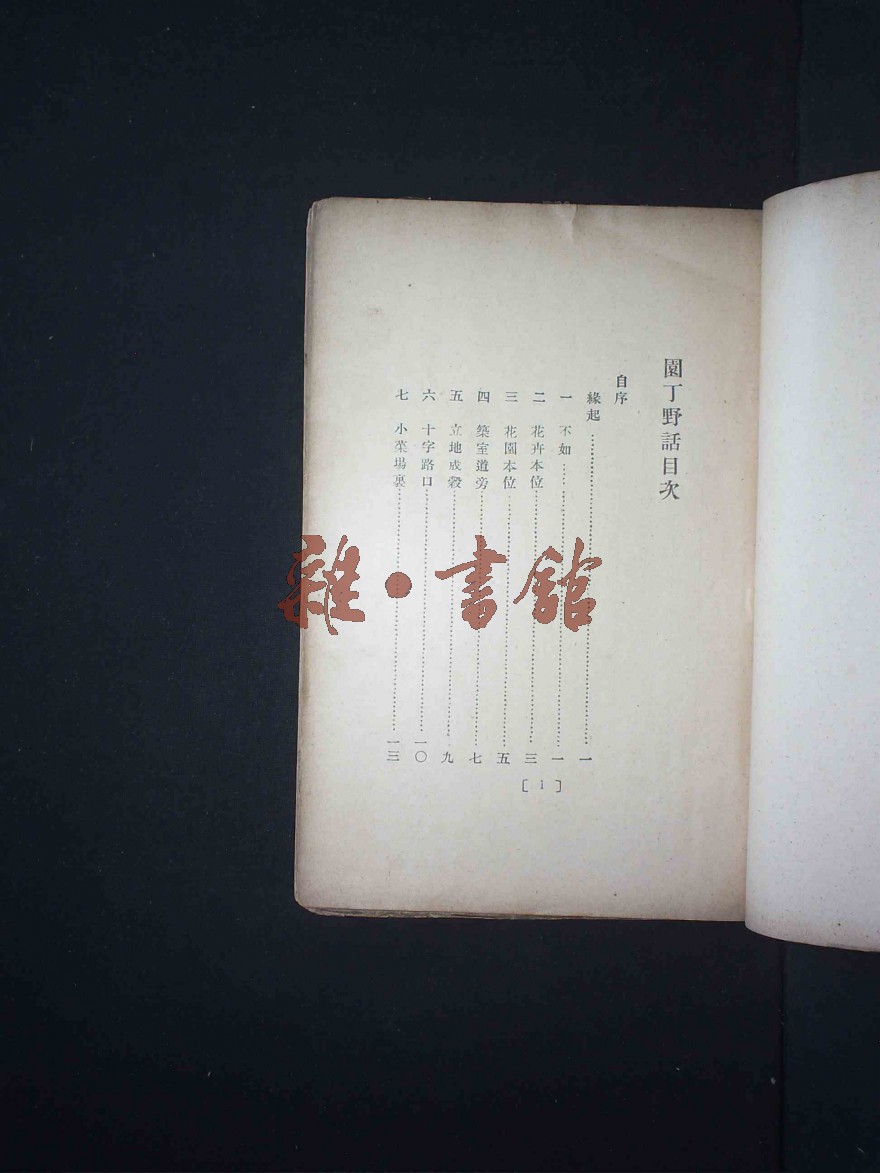 園丁野話目次
自序
緣起……一
一 不如……一
二 花卉本位……三
三 花園本位……五
四 築室道旁……七
五 立地成穀……九
六 十字路口……一〇
七 小菜場裏……一三
[ 1 ]
雜·書館